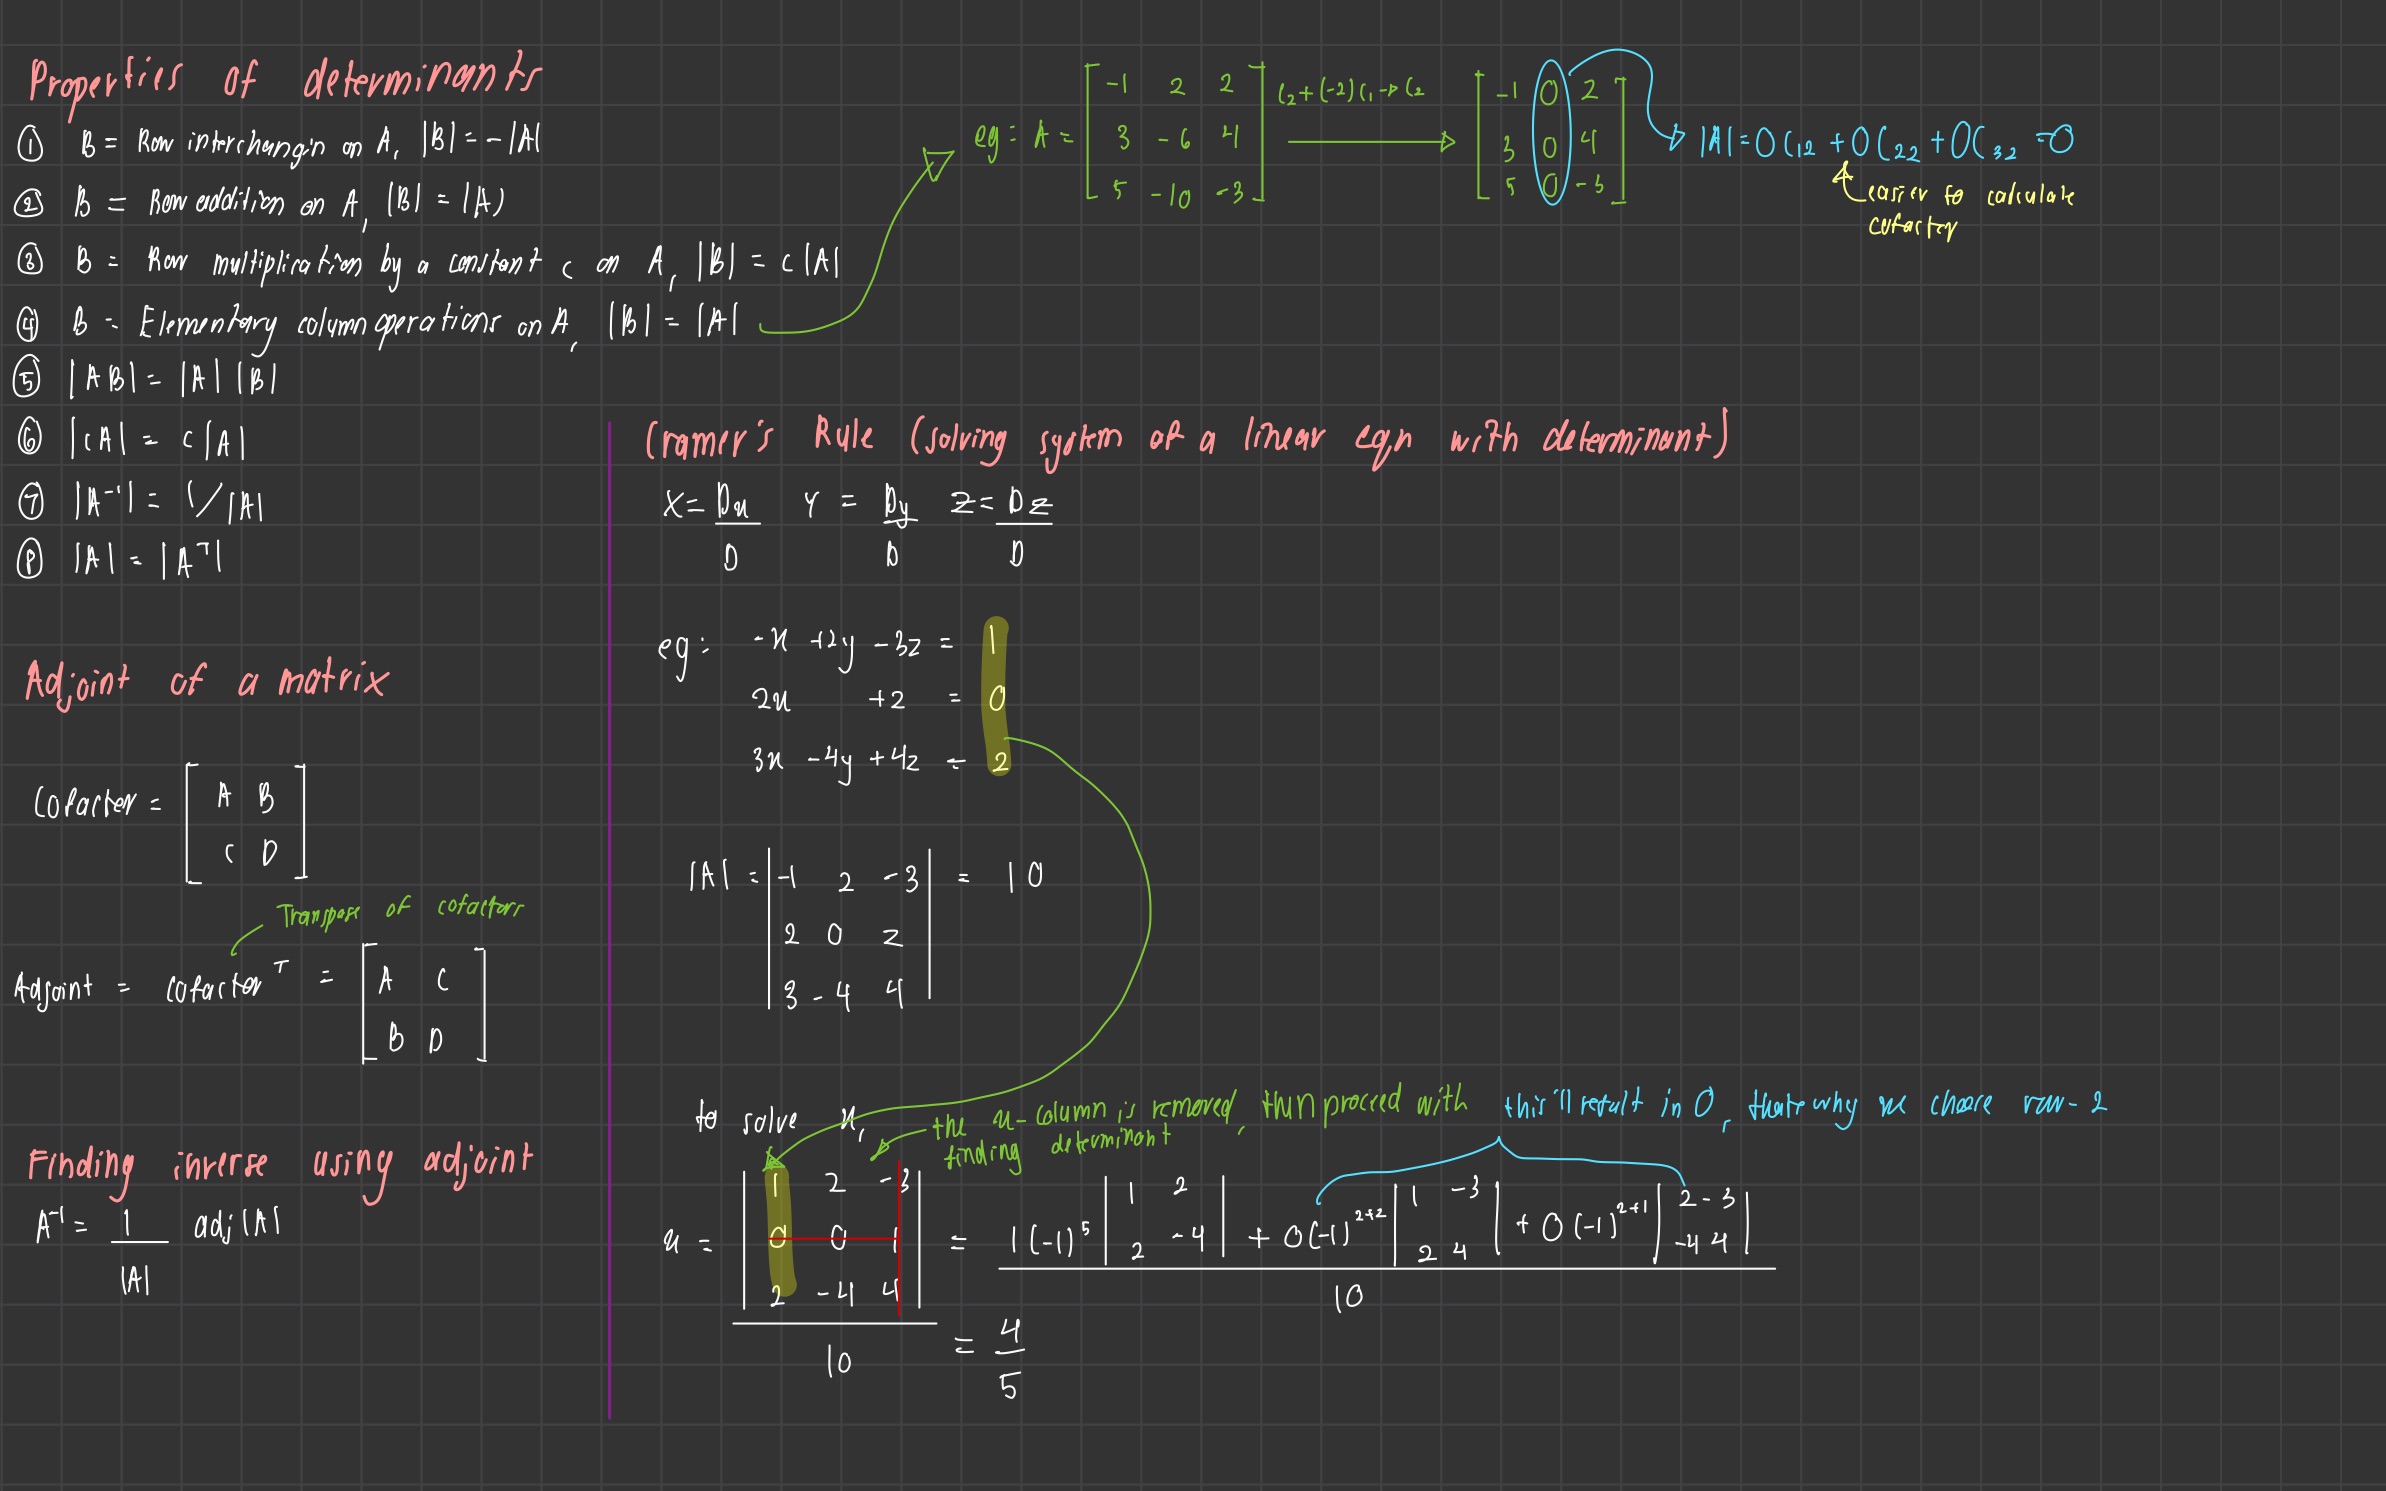 Properties of determinants
① B = Row interchangin on A, |B| = -|A|
② B = Row addition on A, |B| = |A|
③ B = Row multiplication by a constant c on A, |B| = c|A|
④ B = Elementary column operations on A, |B| = |A|
⑤ |AB| = |A| |B|
⑥ |cA| = c|A|
⑦ |A⁻¹| = 1/|A|
⑧ |A| = |Aᵀ|
eg: A = [-1 2 2] C₂+(-2)C₁→C₂ [-1 0 2]
[3 -6 4] [3 0 4] |A| = 0C₁₂ + 0C₂₂ + 0C₃₂ = 0
[5 -10 -3] [5 0 -3]
easier to calculate
cofactor
Adjoint of a matrix
Cofactor = [A B]
[C D]
Transpose of cofactors
Adjoint = cofactorᵀ = [A C]
[B D]
Finding inverse using adjoint
A⁻¹ = 1 adj|A|
|A|
Cramer's Rule (solving system of a linear eqn with determinant)
X = Dx Y = Dy Z = Dz
D D D
eg: -x +2y -3z = 1
2x +z = 0
3x -4y +4z = 2
|A| = |-1 2 -3| = 10
|2 0 z|
|3 -4 4|
to solve x,
the x-column is removed, then proceed with
finding determinant
this'll result in 0, thats why we choose row-2
x = |1 2 -3| = 1(-1)⁵ |1 2| + 0(-1)²⁺² |1 -3| + 0(-1)²⁺¹ |2 -3|
|0 0 1| |2 -4| |2 4| |-4 4|
|2 -4 4|
10 10
= 4
5